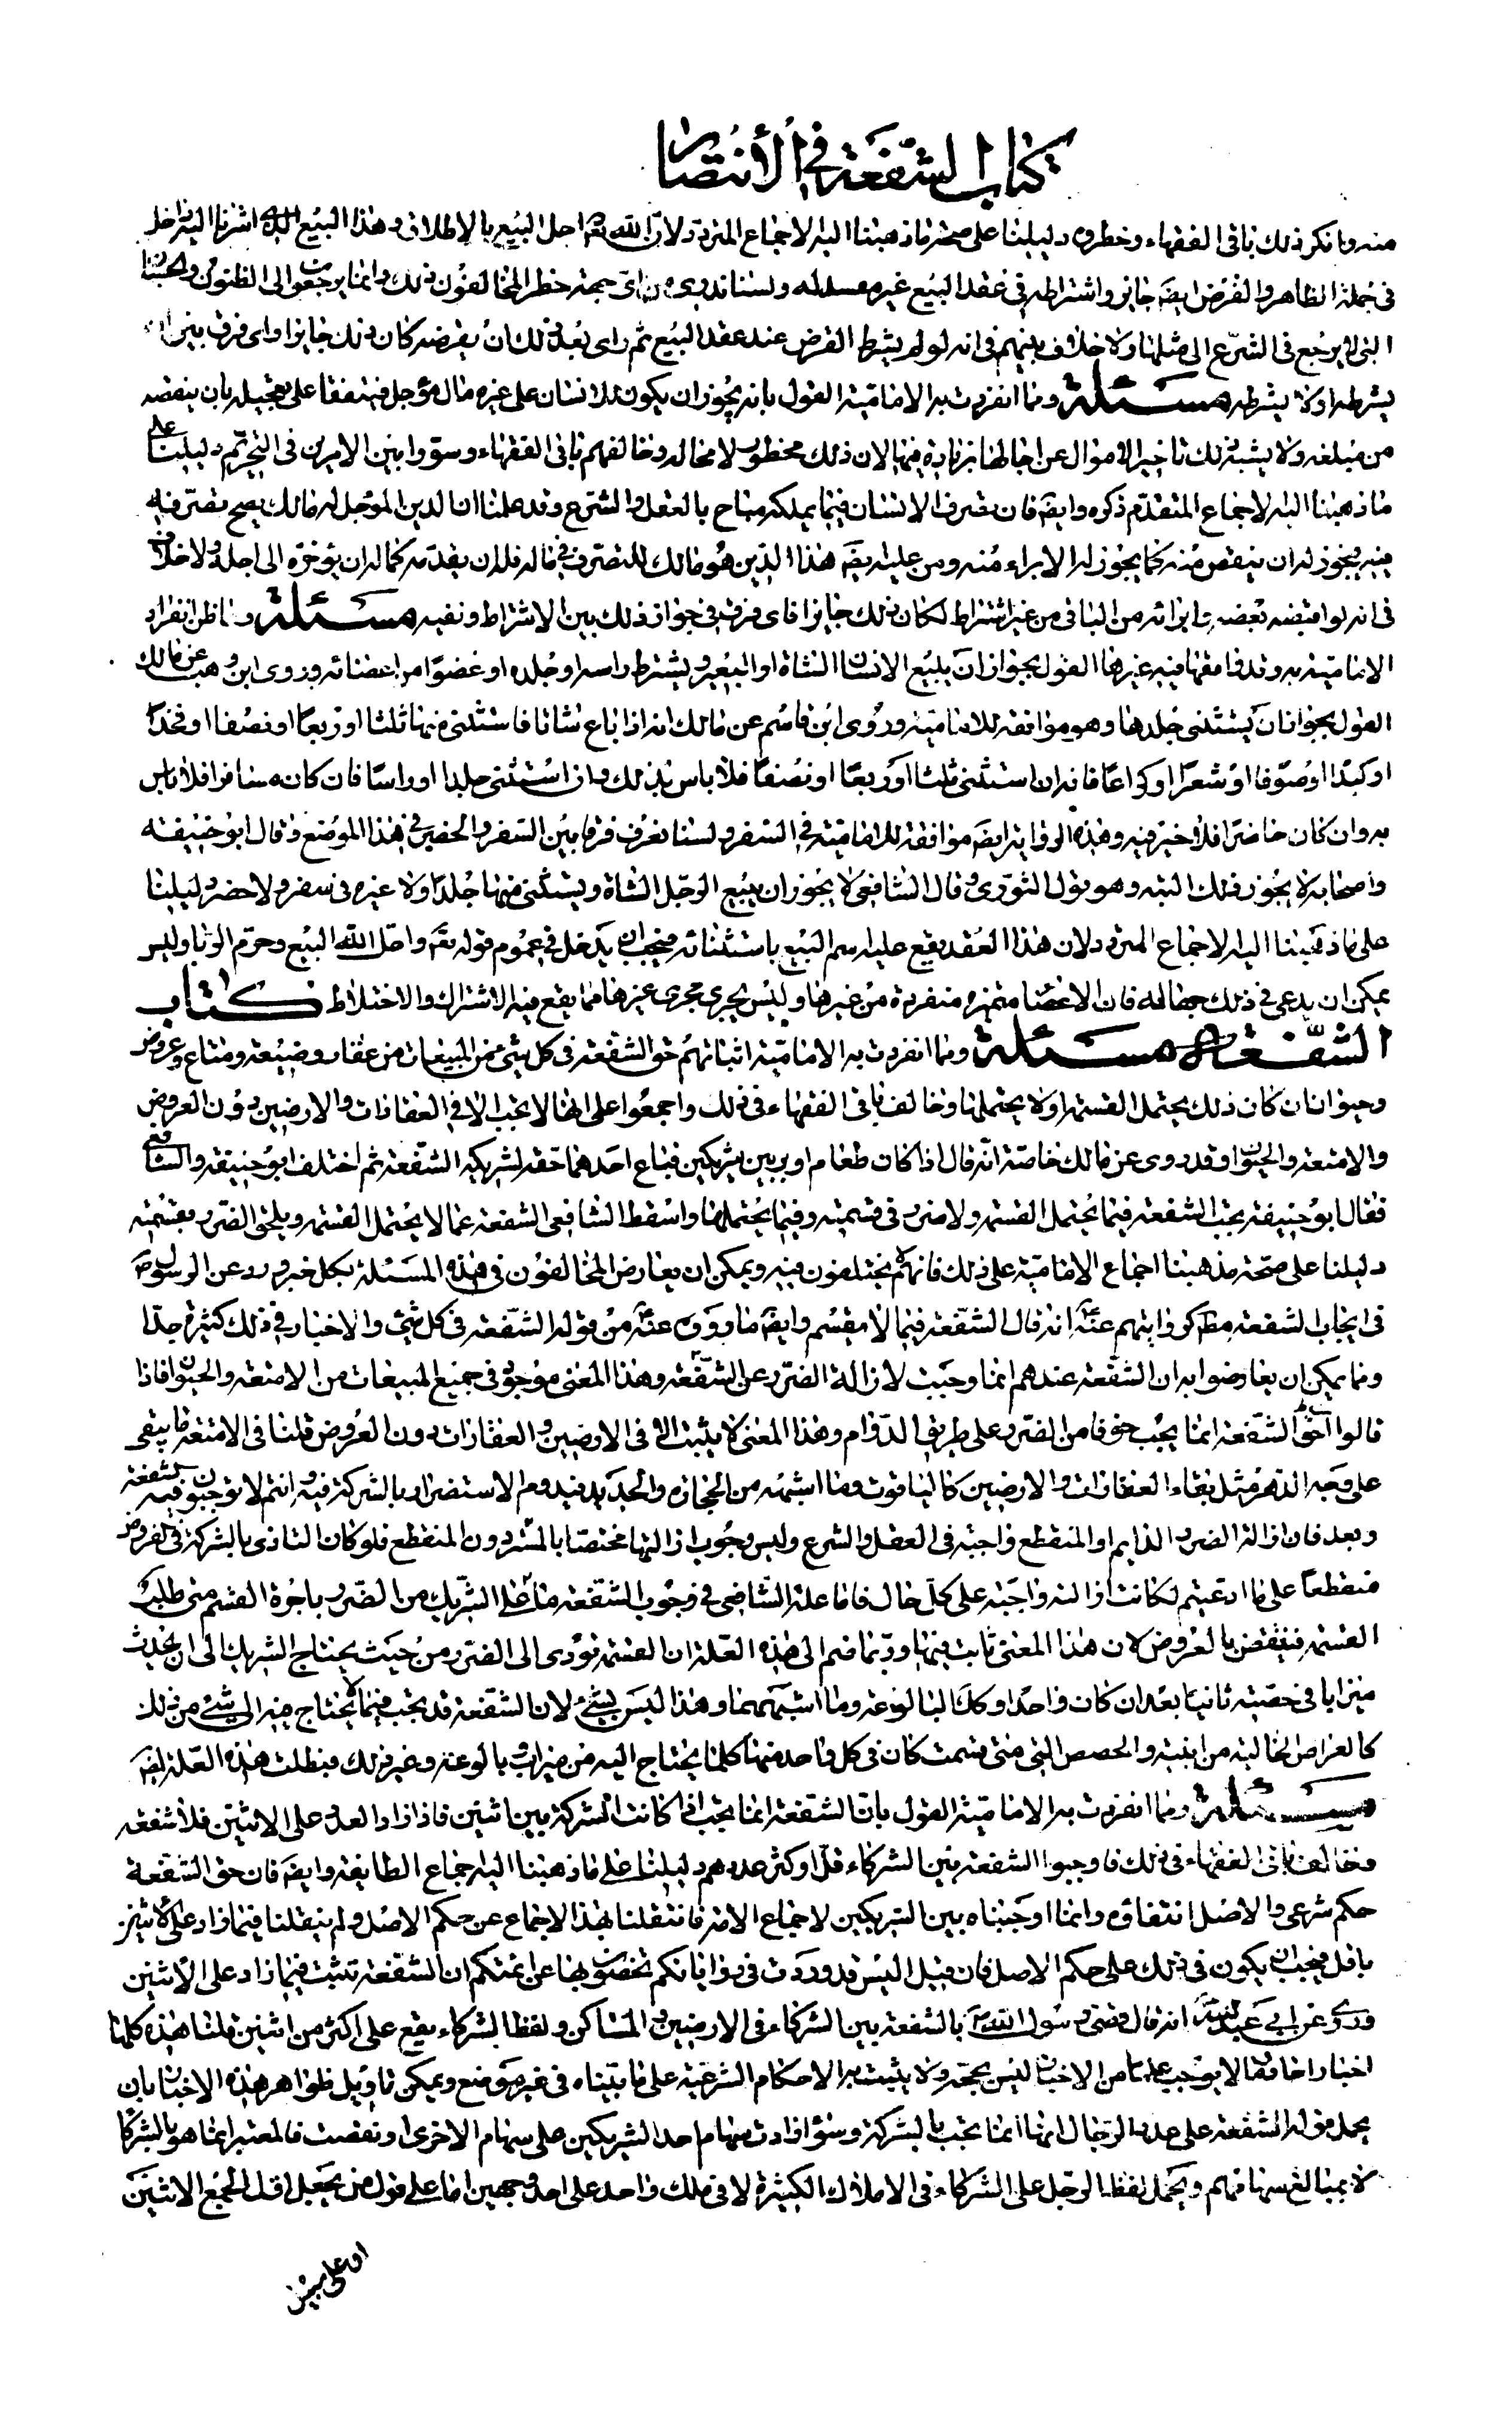 كتاب الشفعة في الأنتصار
منه وانكر ذلك باقى الفقهاء وخطروه دليلنا على صحة ما ذهبنا اليه الاجماع المتردد ولان الله تعم احل البيع بالاطلاق وهذا البيع الذى اشرنا اليه داخل
فى جملة الظاهر والقرض ايضَ جايز واشتراطه فى عقد البيع غير مفسد له ولسنا ندرى من اى جهة خطر المخالفون ذلك وانما يرجعون الى الظنون والحسبان
التى لا يرجع فى الشرع الى مثلها ولا خلاف بينهم فى انه لو لم يشترط القرض عند عقد البيع ثم راى بعد ذلك ان يقرضه كان ذلك جايزا واى فرق بين ان
يشرطه او لا يشرطه مسئلة ومما انفردت به الامامية القول بانه يجوز ان يكون للانسان على غيره مال مؤجل فيتفقا على تعجيله بان ينقصه
من مبلغه ولا يشبه ذلك تاخير الاموال عن اجالها بزيادة فيها لان ذلك محظور لا محالة وخالفهم باقى الفقهاء وسووا بين الامرين فى التحريم دليلنا على
ما ذهبنا اليه الاجماع المتقدم ذكره وايضَ فان تصرف الانسان فيما يملكه مباح بالعقل والشرع وقد علمنا ان الدين المؤجل له مالك يصح تصرفه
فيه فيجوز له ان ينقص منه كما يجوز له الابراء منه ومن عليه ايضَ هذا الدين هو مالك للتصرف فى ماله فله ان يقدمه كما له ان يؤخره الى اجله ولا خلاف
فى انه لو اقبضه بعضه وابراه من الباقى من غير اشتراط لكان ذلك جايزا فاى فرق فى جواز ذلك بين الاشتراط ونفيه مسئلة ومما ظن انفراد
الامامية به وقد وافقها فيه غيرها القول بجواز ان يبيع الانسان الشاة او البعير ويشترط راسه او جلده او عضوا من اعضائه وروى ابن وهب عن مالك
القول بجواز ان يستثنى جلدها وهو موافقة للامامية وروى ابن قاسم عن مالك انه اذا باع شاتا فاستثنى منها ثلثا او ربعا او نصفا او فخذا
او كبدا او صوفا او شعرا او كراعا فانه ان استثنى ثلثا او ربعا او نصفا فلا باس بذلك وان استثنى جلدا او راسا فان كانه مسافرا فلا باس
به وان كان حاضرا فلا خير فيه وهذه الرواية ايضَ موافقة للامامية فى السفر ولسنا نعرف فرقا بين السفر والحضر فى هذا الموضع وقال ابو حنيفة
واصحابه لا يجوز ذلك البتة وهو قول الثورى وقال الشافعى لا يجوز ان يبيع الرجل الشاة ويستثنى منها جلدا ولا غيره فى سفر ولا حضر دليلنا
على ما ذهبنا اليه الاجماع المتردد ولان هذا العقد يقع عليه اسم البيع باستثنائه فيجب ان يدخل فى عموم قوله تعَ واحل الله البيع وحرم الربا وليس
يمكن ان يدعى فى ذلك جهالة فان الاعضا متميزه منفردة من غيرها وليس يجرى مجرى غيرها مما يقع فيه الاشتراك والاختلاط كتاب
الشفعة مسئلة ومما انفردت به الامامية اثباتهم حق الشفعة فى كل شئ من المبيعات من عقار وضيعة ومتاع وعروض
وحيوان ان كان ذلك يحتمل القسمة او لا يحتملها وخالف باقى الفقهاء فى ذلك واجمعوا على انها لا تجب الا فى العقارات والارضين دون العروض
والامتعة والحيوان وقد روى عن مالك خاصة انه قال اذا كان طعام او بر بين شريكين فباع احدهما حقه لشريكه الشفعة ثم اختلف ابو حنيفة والشافعى
فقال ابو حنيفة تجب الشفعة فيما يحتمل القسمة ولا ضرر فى قسمته وفيما يحتملها واسقط الشافعى الشفعة عما لا يحتمل القسمة ويلحق الضرر بقسمته
دليلنا على صحة مذهبنا اجماع الامامية على ذلك فانهم لا يختلفون فيه ويمكن ان يعارض المخالفون فى هذه المسئلة بكل خبر ورد عن الرسول صَ
فى ايجاب الشفعة مط كروايتهم عنه انه قال الشفعة فيما لا يقسم وايضَ ما رووه عنه من قوله الشفعة فى كل شئ والاخبار فى ذلك كثيرة جدا
ومما يمكن ان يعارضوا به ان الشفعة عندهم انما وجبت لازالة الضرر عن الشفعة وهذا المعنى موجود فى جميع المبيعات من الامتعة والحيوان فاذا
قالوا حق الشفعة انما يجب خوفا من الضرر على طريق الدوام وهذا المعنى لا يثبت الا فى الارضين والعقارات دون العروض قلنا فى الامتعة ما يبقى
على وجه الدهر مثل بقاء العقارات والارضين كالياقوت وما اشبهه من الحجارة والحديد فيدوم الاستضرار بالشركة فيه وانتم لا توجبون فيه الشفعة
وبعد فان ازالة الضرر الدايم او المنقطع واجبة فى العقل والشرع وليس وجوب ازالتها مختصا بالمستمر دون المنقطع فلو كان التاذى بالشركة فى العروض
منقطعا على ما ادعيتم لكانت ازالته واجبة على كل حال فاما علة الشافعى فى وجوب الشفعة ما على الشريك من الضرر باجرة القسم متى طلبت
القسمة فينقض بالعروض لان هذا المعنى ثابت فيها وربما ضم الى هذه العلة ان القسمة تؤدى الى الضرر من حيث يحتاج الشريك الى ان يحدث
ميزابا فى حصته ثانيا بعد ان كان واحدا وكذلك البالوعة وما اشبههما وهذا ليس بشئ لان الشفعة قد تجب فيما لا يحتاج فيه الى شئ من ذلك
كالعراص الخالية من ابنية والحصص التى متى قسمت كان فى كل واحد منها كلما يحتاج اليه من ميزاب وبالوعة وغير ذلك فبطلت هذه العلة ايضَ
مسئلة ومما انفردت به الامامية القول بان الشفعة انما تجب اذا كانت الشركة بين اثنين فاذا زاد العدد على الاثنين فلا شفعة
وخالف باقى الفقهاء فى ذلك فاوجبوا الشفعة بين الشركاء قل او كثر عددهم دليلنا على ما ذهبنا اليه اجماع الطايفة وايضَ فان حق الشفعة
حكم شرعى والاصل انتفاؤه وانما اوجبناه بين الشريكين لاجماع الامة فانتقلنا بهذا الاجماع عن حكم الاصل ولم ينقلنا فيما زاد على الاثنين
ناقل فيجب ان يكون فى ذلك على حكم الاصل فان قيل اليس قد وردت فى رواياتكم تختصون بها عن ائمتكم ان الشفعة تثبت فيما زاد على الاثنين
وروى عن ابى عبد الله انه قال قضى رسول الله صَ بالشفعة بين الشركاء فى الارضين والمساكن ولفظ الشركاء يقع على اكثر من اثنين قلنا هذه كلها
اخبار احاد وما لا يوجب علما من الاخبار ليس بحجة ولا يثبت به الاحكام الشرعية على ما بيناه فى غير موضع ويمكن تاويل ظواهر هذه الاخبار بان
يحمل قوله الشفعة على عدد الرجال انها انما تجب بالشركة وسواء زادت سهام احد الشريكين على سهام الاخرى او نقصت فالمعتبر انما هو بالشركا
لا بمبالغ سهامهم ويحمل لفظ الرجل على الشركاء فى الاملاك الكثيرة لا فى ملك واحد على احد وجهين اما على قول من يجعل اقل الجمع الاثنين